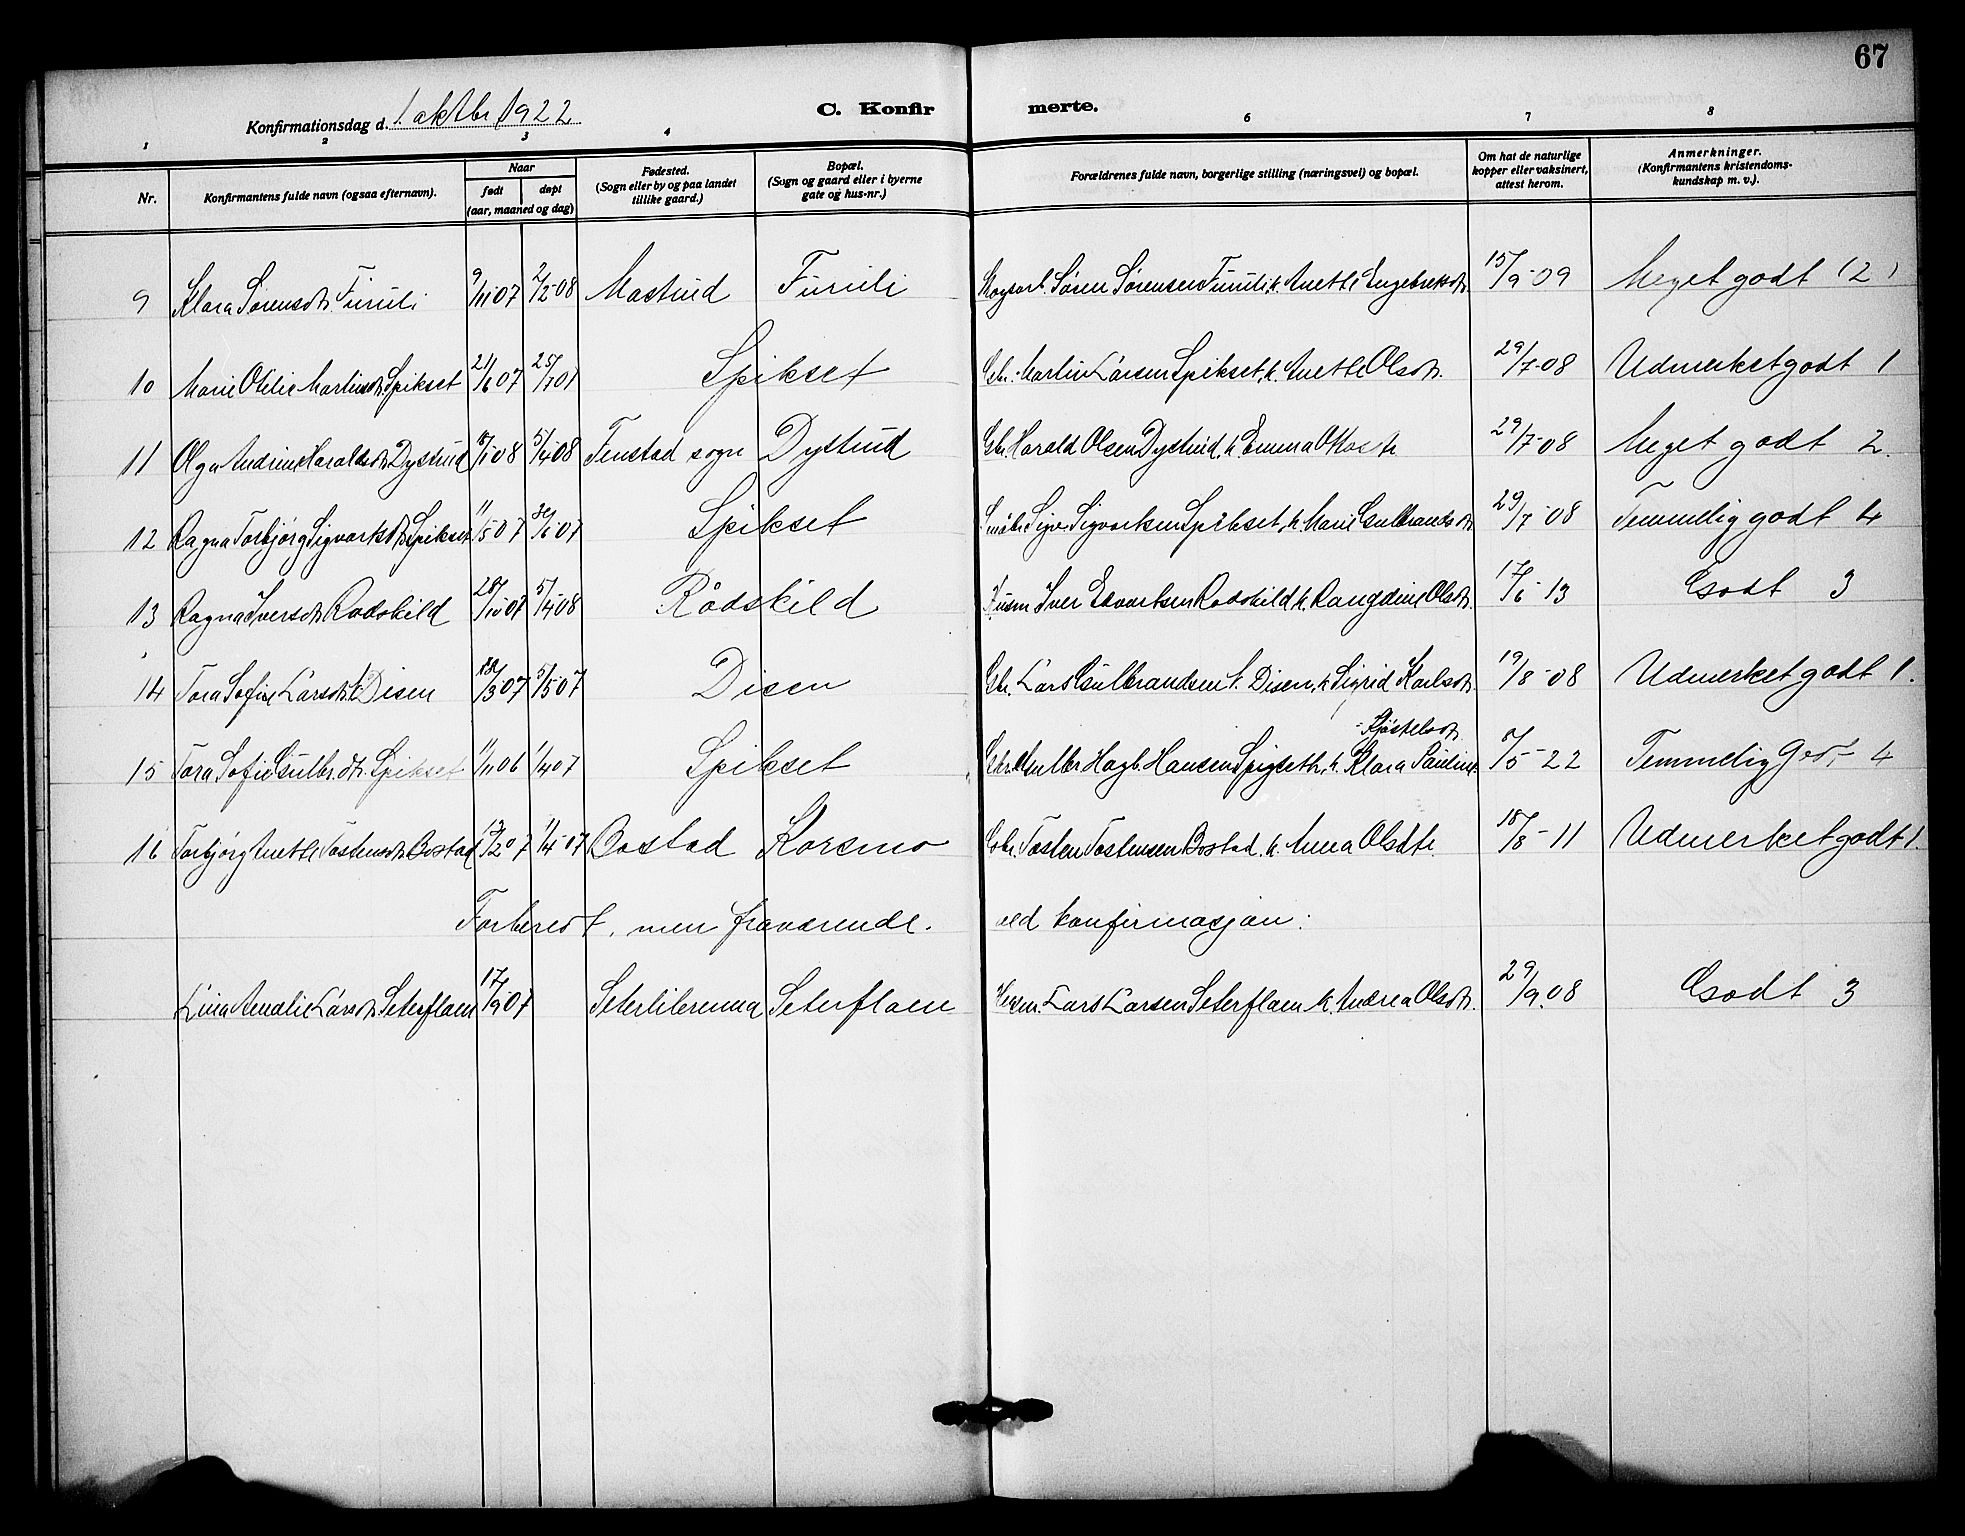 67
Konfirmationsdag d. 1 oktbr 1922 C. Konfirmerte.
1 2 3 4 6 7 8
Nr. Konfirmantens fulde navn (ogsaa efternavn). Naar født døpt (aar, maaned og dag) Fødested. (Sogn eller by og paa landet tillike gaard.) Bopæl. (Sogn og gaard eller i byerne gate og hus-nr.) Forældrenes fulde navn, borgerlige stilling (næringsvei) og bopæl. Om hat de naturlige kopper eller vaksinert, attest herom. Anmerkninger. (Konfirmantens kristendoms-kundskap m. v.).
9 Klara Sørensdtr. Furuli 9/11 07 2/2-08 Mastud Furuli Søren Sørensen Furuli, h. Anette Engebretsdtr. 15/9-09 Meget godt (2)
10 Marie Otilie Martinsdtr. Spikset 21/6 07 25/7 07 Spikset Gbr. Martin Larsen Spikset, h. Anette Olsdtr. 29/7-08 Udmerket godt 1
11 Olga Andrine Haraldsdtr. Dystud /1 08 5/4 08 Fenstad sogn Dystud Gbr. Harald Olsen Dystud, h. Emma 29/7-08 Meget godt 2.
12 Ragna Torbjørg Sigvartsdtr. Spikset 11/5 07 30/6 07 Spikset Sigvartsen Spikset, h. Marie Gulbrandsdtr. 29/7-08 Temmelig godt 4
13 Ragna Iversdtr. Rødskild 28/10 07 5/4 08 Rødskild Husm. Iver Edvartsen Rødskild h. Rangdine Olsdtr. 17/6-13 Godt 3
14 Tora Sofie Larsdtr. Disen /3 07 5/5 07 Disen Gbr. Lars Gulbrandsen Disen, h. Sigrid Karlsdtr. 19/8-08 Udmerket godt 1.
Kjøstelsdtr.
15 Tora Sofie Gulbr.dtr. Spikset 11/11 06 1/4 07 Spikset Gbr. Gulbr. Hagb. Hansen Spigseth, h. Klara Pauline 8/5-22 Temmelig godt 4
16 Torbjørg Anette Tostensdtr. Bostad /2 07 1/4 07 Bostad Korsmo Gbr. Tosten Tostensen Bostad h. Anna Olsdtr. 18/8-11 Udmerket godt 1.
Forberedt, men fraværende. ved konfirmasjon:
Lina Amalie Larsdtr. Seterflaen 17/9 07 Seterliberuna Seterflaen Lars Larsen Seterflaen h. Andrea Olsdtr. 29/9.08 Godt 3